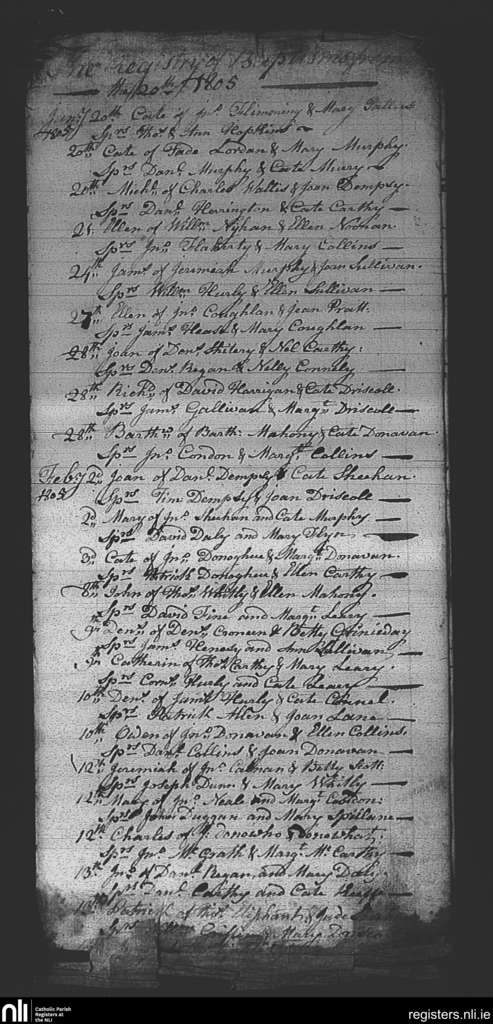 The Registry of Baptisms from
the 20th of 1805
Jany 20th Cate of Jno. Flimening & Mary
1805 Sprs Thos. & Ann Hopkins
20th Cate of Fade Lordan & Mary Murphy.
Sprs Danl. Murphy & Cate
20th Michl. of Charles Wallis & Joan Dempsy.
Sprs Danl. Harrington & Cate Carthy
21 Ellen of Willm. Nyhan & Ellen Noonan
Sprs Jno. Flaharty & Mary Collins
24th Jams. of Jeremiah Murphy & Joan Sullivan.
Sprs Willm. Hurly & Ellen Sullivan
27th Ellen of Jno. Coughlan & Jean Pratt.
Sprs Jams. Hease & Mary Coughlan
28th Joan of Denl. & Nel Carthy.
Sprs Denl. Regan & Nelly Connely
28th Richd. of David Harrigan & Cate Driscoll.
Sprs Jams. Gallivan & Margt. Driscoll
28th Barthw. of Barth. Mahony & Cate Donavan
Sprs Jno. Condon & Margt. Collins
Feby 2d Joan of Danl. Dempsy & Cate Sheehan.
1805 Sprs Tim Dempsy & Joan Driscoll
2d Mary of Jno. Sheehan and Cate Murphy
Sprs David Daly and Mary Flyn
3d Cate of Jno. Donoghue & Margt. Donavan.
Sprs Patrick Donoghue & Ellen Carthy
8th John of Thos. Whitly & Ellen Mahony.
Sprs David Fine and Margt. Leary
9th Denis of Denl. Croneen & Betty
Sprs Jams. Henesy and Ann Sullivan
9th Catherin of Thos. Carthy & Mary Leary.
Sprs Corns. Hurly and Cate Leary
10th Denl. of Jams. Hurly & Cate Connel.
Sprs Patrick Allen & Joan Lane
10th Owen of Jno. Donavan & Ellen Collins.
Sprs Danl. Collins & Joan Donavan
12th Jeremiah of Jno. Calnan & Betty Scott.
Sprs Joseph Dunn & Mary Whitly
12th Mary of Jno. Neale and Margt. Condon.
Sprs John Duggan and Mary Spillane
12th Charles of J. donowho & donowhat.
Sprs Jno. McGrath & Margt. McCarthy
13th Jno. of Danl. Regan, and Mary Daly.
Sprs Danl. Carthy and Cate
13th Patrick of Thos. Oliphant & Jude
Sprs & Mary
nli Catholic Parish Registers at the NLI
registers.nli.ie